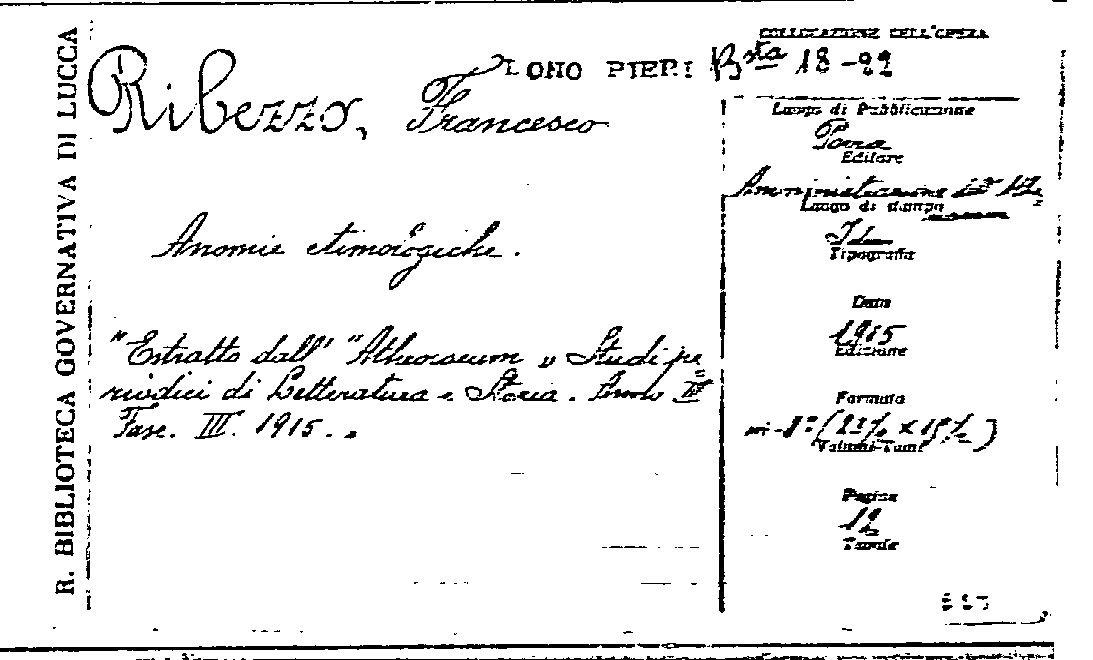 R. BIBLIOTECA GOVERNATIVA DI LUCCA
COLLOCAZIONE DELL'OPERA
DONO PIERI Bsta 18-22
Ribezzo, Francesco
Luogo di Pubblicazione
Editore
Amministrazione
Luogo di stampa
Tipografia
Anomie etimologiche.
Data
1915
Edizione
"Estratto dall' "Athenaeum „ Studi pe=
riodici di Letteratura e Storia. Anno III
Fasc. III. 1915. „
Formato
in-8° (23½ × 15½)
Volumi-Tomi
Pagine
12
Tavole